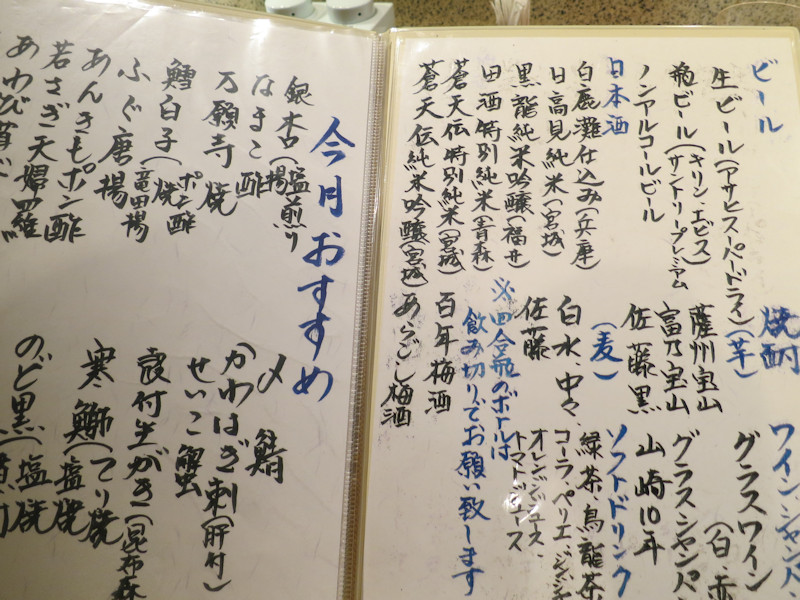 ビール
生ビール(アサヒスーパードライ)
瓶ビール(キリン、エビス)
(サントリープレミアム
ノンアルコールビール
日本酒
白鹿灘仕込み(兵庫)
日高見純米(宮城)
黒龍純米吟醸(福井)
田酒特別純米(青森)
蒼天伝特別純米(宮城)
蒼天伝純米吟醸(宮城)
焼酎
(芋)
薩州宝山
富乃宝山
佐藤黒
(麦)
白水、中々、
佐藤
※四合瓶のボトルは
飲み切りでお願い致します
百年梅酒
あらごし梅酒
ワイン、シャンパ
グラスワイン
(白、赤
グラスシャンパ
山崎10年
ソフトドリンク
緑茶、烏龍茶
コーラ、ペリエ、ジンジ
オレンジジュース、
トマトジュース
今月おすすめ
銀杏(塩煎り
揚
なまこ酢
万願寺焼
鱈白子(ポン酢
焼
竜田揚
ふぐ唐揚
あんきもポン酢
若さぎ天婦羅
〆鯖
(かわはぎ刺(肝付)
せいこ蟹
殻付生がき(昆布森
寒鰤(てり焼
塩焼
のど黒(塩焼